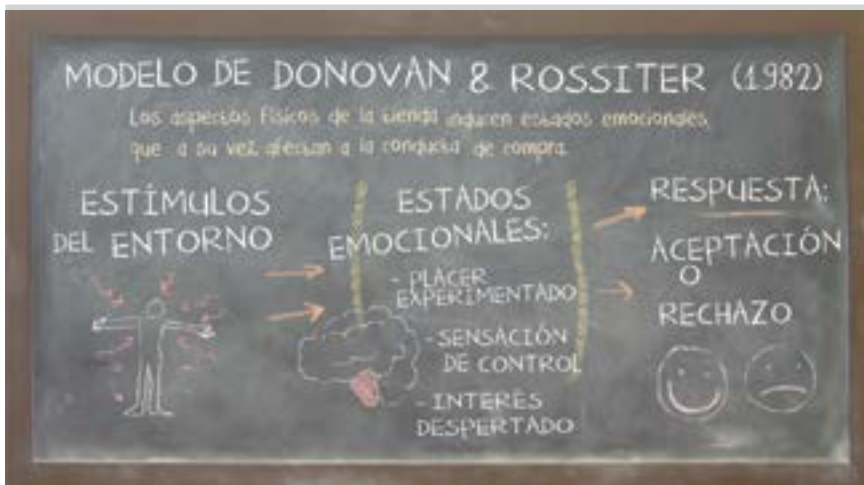 MODELO DE DONOVAN & ROSSITER (1982)
Los aspectos físicos de la tienda inducen estados emocionales,
que a su vez, afectan a la conducta de compra.
ESTÍMULOS
DEL ENTORNO
ESTADOS
EMOCIONALES:
- PLACER
EXPERIMENTADO
- SENSACIÓN
DE CONTROL
- INTERÉS
DESPERTADO
RESPUESTA:
ACEPTACIÓN
O
RECHAZO